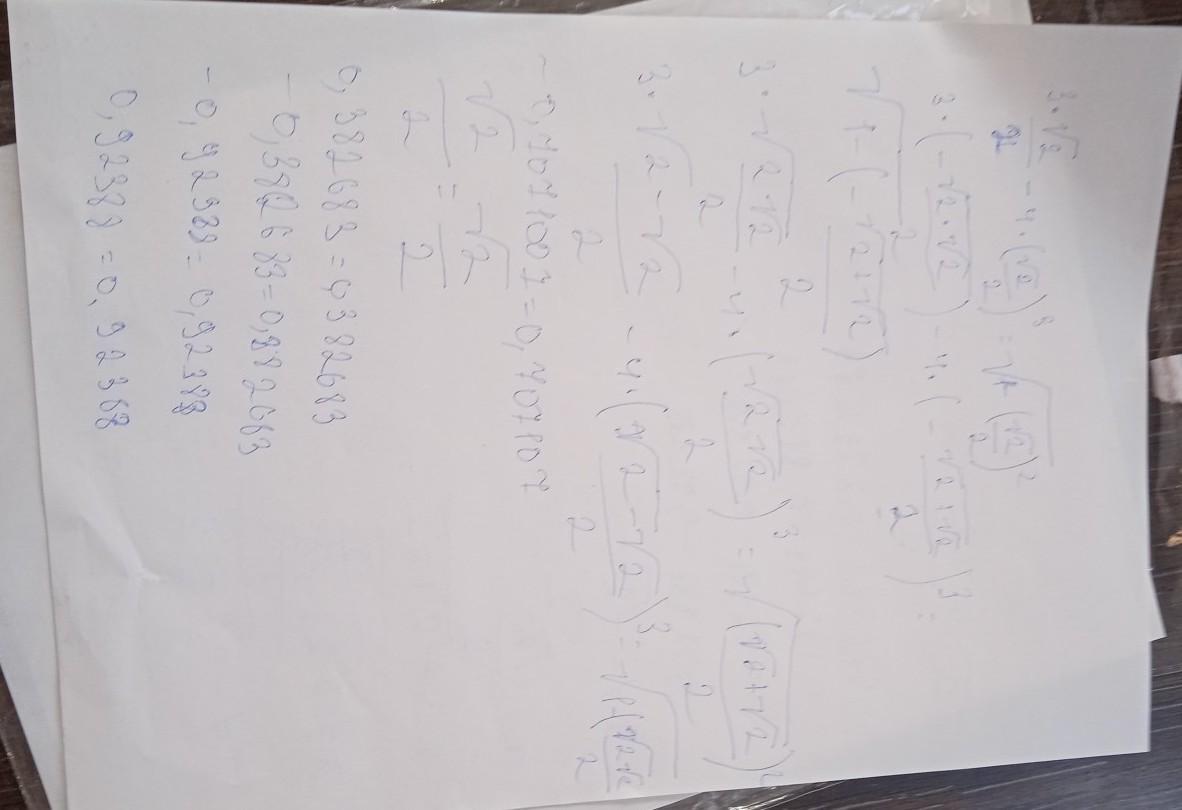 3·√2/2 - 4·(√2/2)³ = √1-(√2/2)²
3·(-√2+√2/2) - 4·(-√2+√2/2)³ =
√1-(-√2+√2/2)
3·√2+√2/2 - 4·(√2+√2/2)³ = √(√2+√2/2)²
3·√2-√2/2 - 4·(√2-√2/2)³ = √1-(√2-√2/2
-0,7071007=0,7071107
√2/2 = √2/2
0,382683=0,382683
-0,382683=0,882663
-0,92388=0,92388
0,92388=0,92368